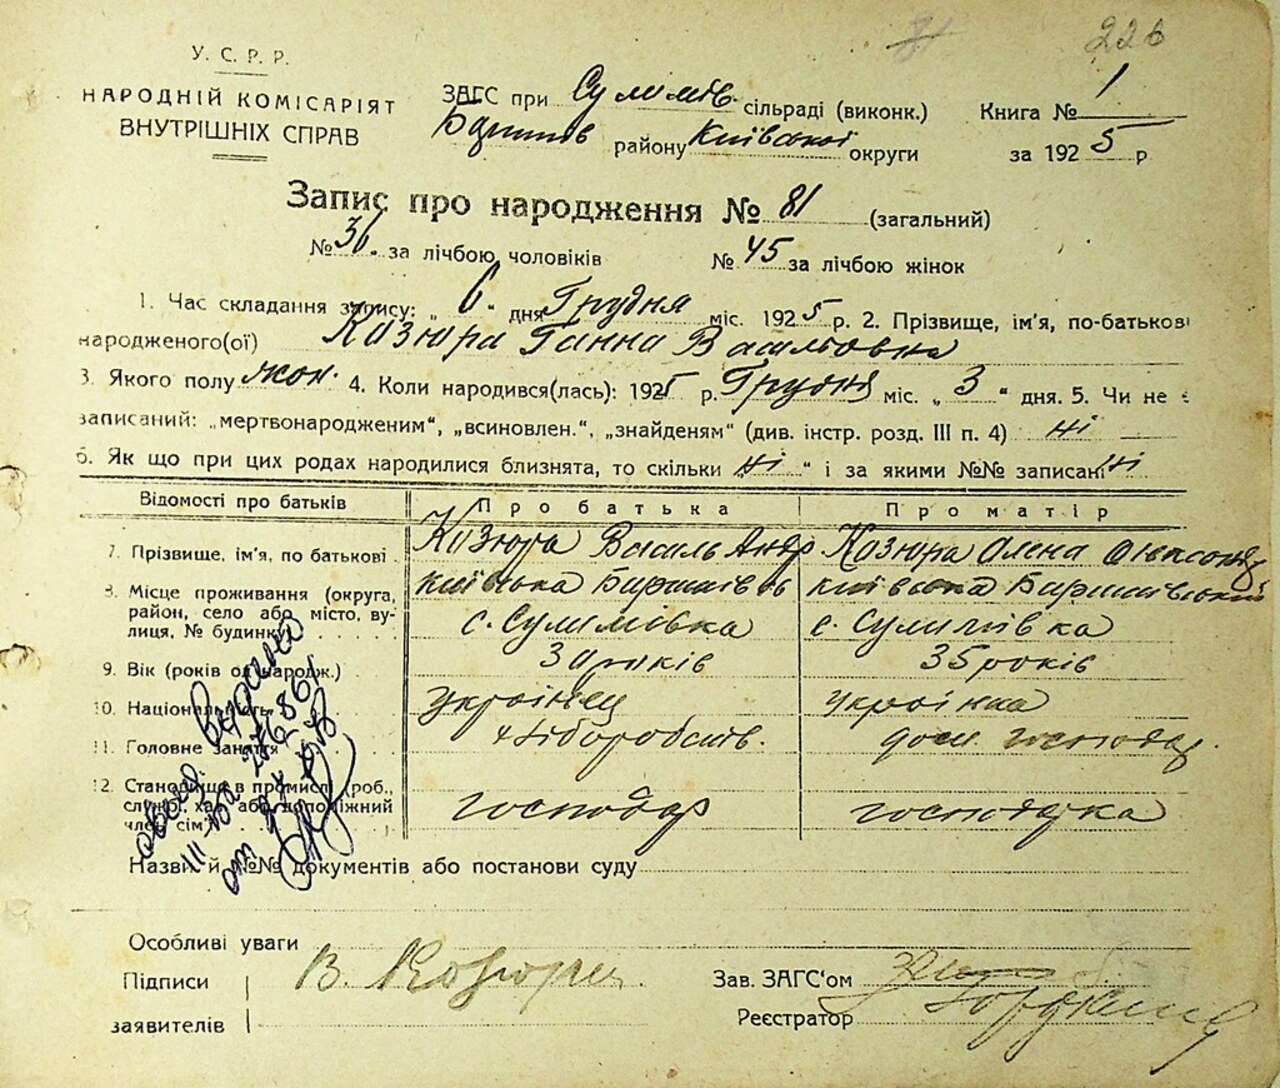 226
У. С. Р. Р.
НАРОДНІЙ КОМІСАРІЯТ
ВНУТРІШНІХ СПРАВ
ЗАГС при Сулимів. сільраді (виконк.)
району Київської округи
Книга № 1
за 1925 р
Запис про народження № 81 (загальний)
№ 36. за лічбою чоловіків № 45 за лічбою жінок
1. Час складання запису: „ 6 “ дня Грудня міс. 1925 р. 2. Прізвище, ім'я, по-батькові
народженого(ої) Козюра Ганна Васильовна
3. Якого полу жон. 4. Коли народився(лась): 1925 р. Грудня міс. „ 3 “ дня. 5. Чи не є
записаний: „мертвонародженим“, „всиновлен.“, „знайденям“ (див. інстр. розд. III п. 4) ні
6. Як що при цих родах народилися близнята, то скільки „ ні “ і за якими №№ записані ні
Відомості про батьків Про батька Про матір
7. Прізвище, ім'я, по батькові . Козюра Василь Андр Козюра Олена Олександ
8. Місце проживання (округа, район, село або місто, вулиця, № будинку) київська київська
с. Сулимівка с. Сулимівка
9. Вік (років од народж.) років 35 років
10. Національність українец українка
11. Головне заняття Хліборобств. дом. господар.
12. Становище в промислі (роб., служб., хаз. або допоміжний член сім.) господар господарка
Назви й №№ документів або постанови суду
Особливі уваги
Підписи
заявителів
В. Козюра
Зав. ЗАГС‘ом
Реєстратор